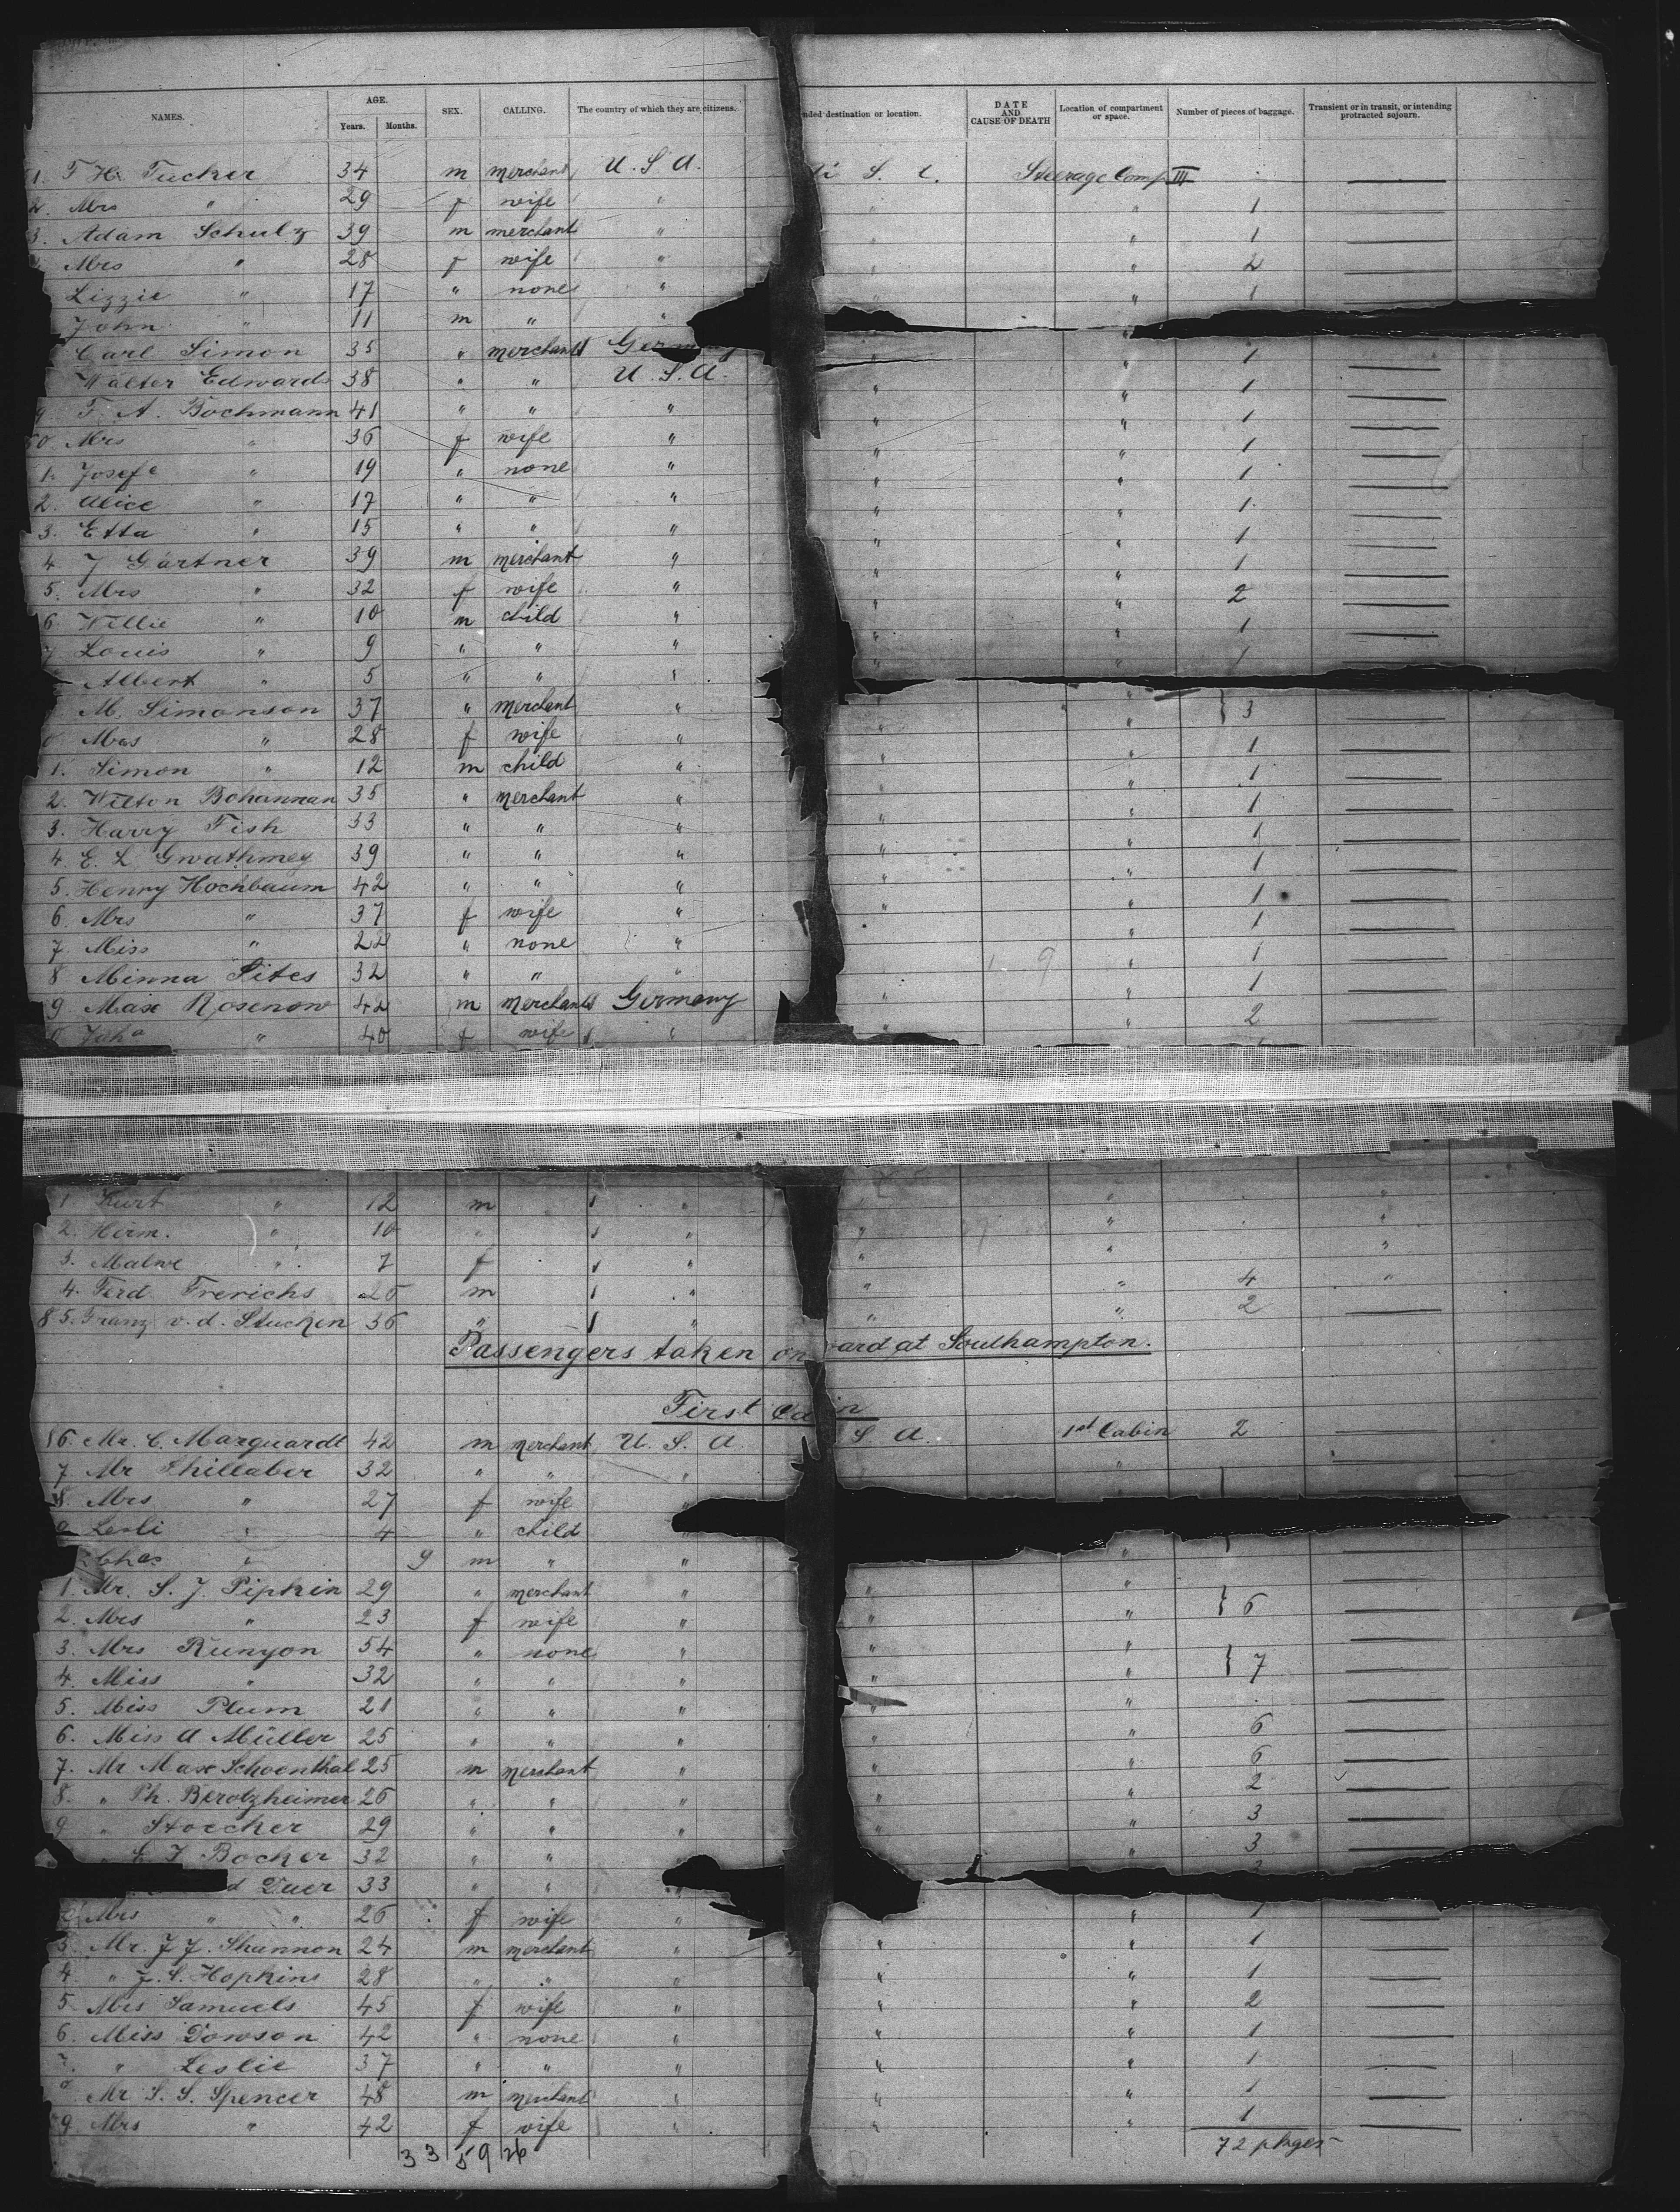 NAMES. AGE. Years. Months. SEX. CALLING. The country of which they are citizens. nded destination or location. DATE AND CAUSE OF DEATH Location of compartment or space. Number of pieces of baggage. Transient or in transit, or intending protracted sojourn.
1. F. H. Tucker 34 m merchant U. S. A. Steerage Comp III
2. Mrs " 29 f wife " " " 1
3. Adam Schulz 39 m merchant " " " 1
Mrs " 28 f wife " " " 2
Lizzie " 17 " none " " " 1
John " 11 m " "
Carl Simon 35 " merchant Germany " " 1
Walter Edwards 38 " " U. S. A. " " 1
9 F. A. Bochmann 41 " " " " " 1
50 Mrs " 36 f wife " " " 1
1. Josefe " 19 " none " " " 1
2. Alice " 17 " " " " " 1
3. Etta " 15 " " " " " 1
4 J Gärtner 39 m merchant " " " 1
5. Mrs " 32 f wife " " " 2
6. Willie " 10 m child " " " 1
7 Louis " 9 " " " " " 1
Albert " 5 " " "
M. Simonson 37 " merchant " " " } 3
0 Mrs " 28 f wife " " " 1
1. Simon " 12 m child " " " 1
2. Wilton Bohannan 35 " merchant " " " 1
3. Harry Fish 33 " " " " " 1
4. E. L. Gwathmey 39 " " " " " 1
5. Henry Hochbaum 42 " " " " " 1
6 Mrs " 37 f wife " " " 1
7 Miss " 22 " none " " " 1
8 Minna Sites 32 " " " " " 1
9 Max Rosenow 42 m merchant Germany " " 2
" 40 f wife "
1 Kurt " 12 m " " " "
2. Herm. " 10 " " " " "
3. Malwe " 7 f " " " "
4. Ferd. Frerichs 25 m " " " 4 "
85. Franz v. d. Stucken 36 " " " " 2
Passengers taken on oard at Southampton.
First Ca in
86. Mr. C. Marquardt 42 m merchant U. S. A. S. A. 1st Cabin 2
7. Mr Shillaber 32 " " " "
8. Mrs " 27 f wife "
9 Lesli " 4 " child "
Chas " 9 m " " "
1. Mr. S. J. Pipkin 29 " merchant " " "
2. Mrs " 23 f wife " " " } 6
3. Mrs Runyon 54 " none " " "
4. Miss " 32 " " " " " } 7
5. Miss Plum 21 " " " " "
6. Miss A Müller 25 " " " " " 6
7. Mr Max Schoenthal 25 m merchant " " " 6
8. " Ph. Berolzheimer 26 " " " " " 2
9 " Stoecker 29 " " " " " 3
" E. F. Bocker 32 " " " " 3
d Duer 33 " " "
2 Mrs " " 26 f wife " " " 1
3. Mr. J. J. Shannon 24 m merchant " " " 1
4. " J. S. Hopkins 28 " " " " " 1
5 Mrs Samuels 45 f wife " " " 2
6. Miss Dowson 42 " none " " " 1
7. " Leslie 37 " " " " " 1
Mr S. S. Spencer 48 m merchant " " " 1
9 Mrs " 42 f wife " " " 1
33 59 26 72 pkges